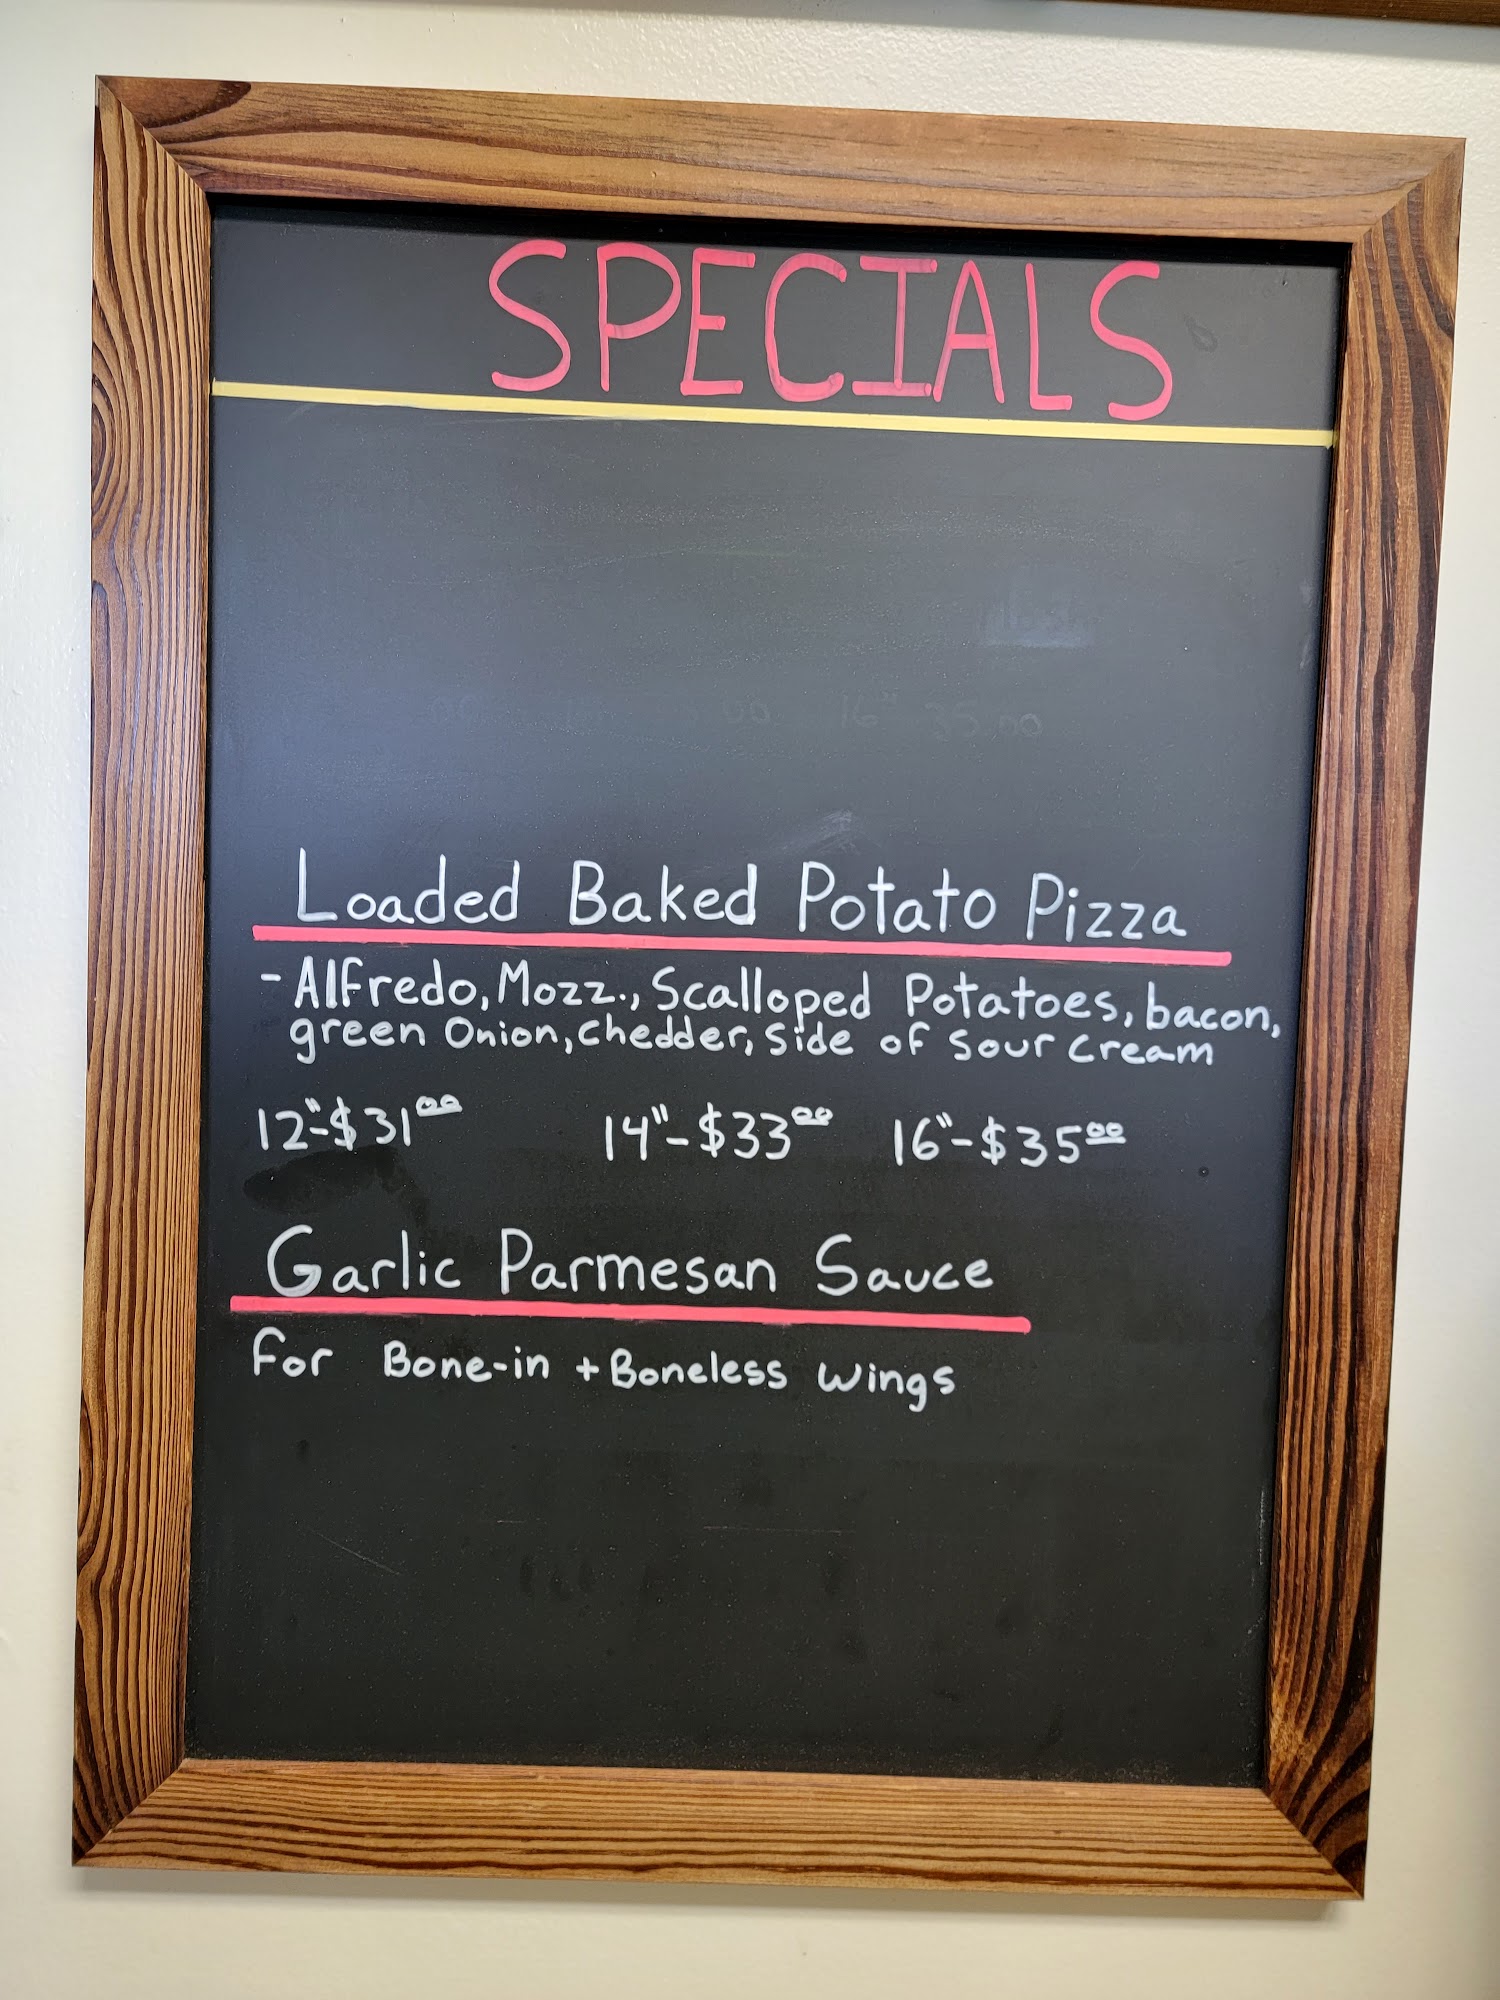 SPECIALS
16" 35.00
Loaded Baked Potato Pizza
- Alfredo, Mozz., Scalloped Potatoes, bacon,
green Onion, chedder, side of sour cream
12"-$31.00 14"-$33.00 16"-$35.00
Garlic Parmesan Sauce
for Bone-in + Boneless wings